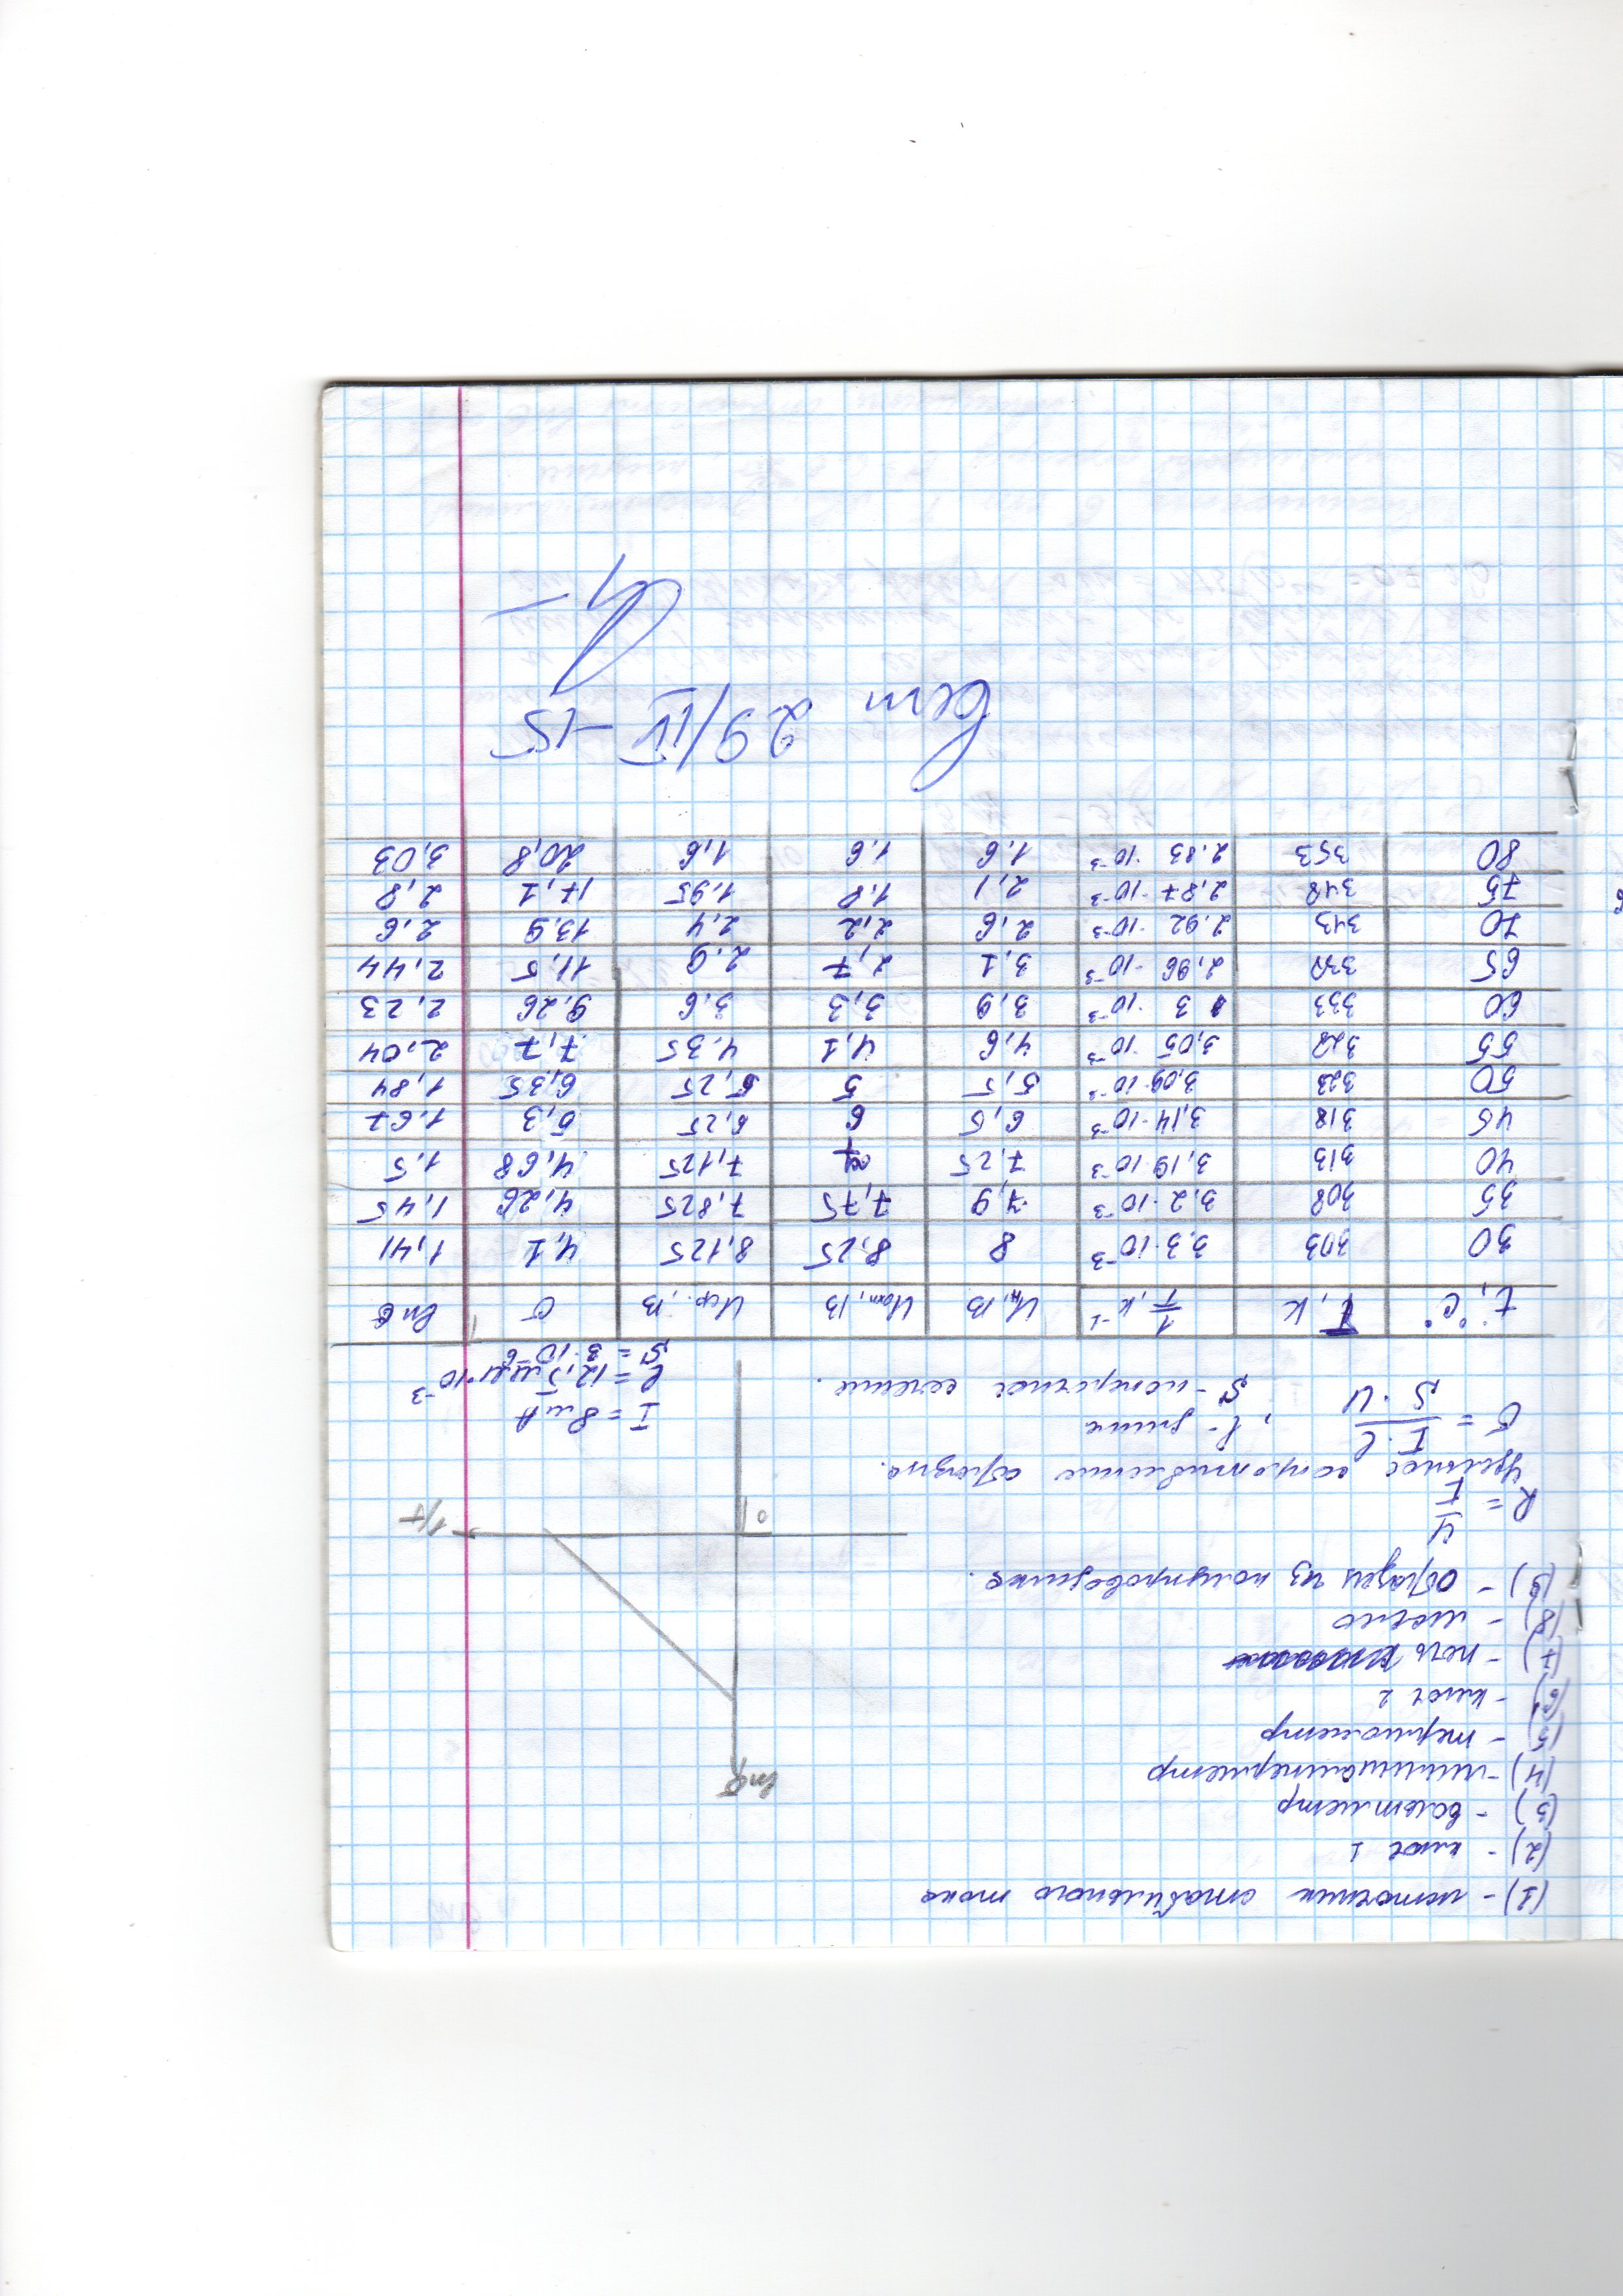 (1) - источник стабильного тока
(2) - ключ 1
(3) - вольтметр
(4) - миллиамперметр
(5) - термометр
(6) - ключ 2
(7) - печь
(8) - масло
(9) - образец из полупроводника.
lnσ
0
1/T
R = U/I
Удельное сопротивление образца.
σ = I·l / S·U , l - длина
S - поперечное сечение.
I = 8 мА
l = 12,5 мм·10⁻³
S = 3·10⁻⁶
t, °C° T, K 1/T, K⁻¹ Uн, В Uохл, В Uср., В σ lnσ
30 303 3.3·10⁻³ 8 8,25 8,125 4,1 1,41
35 308 3.2·10⁻³ 7,9 7,75 7,825 4,26 1,45
40 313 3,19·10⁻³ 7,25 7 7,125 4,68 1.5
45 318 3,14·10⁻³ 6,5 6 6,25 5,3 1.67
50 323 3,09·10⁻³ 5,5 5 5,25 6,35 1,84
55 328 3,05·10⁻³ 4,6 4,1 4.35 7,7 2,04
60 333 3·10⁻³ 3,9 3,3 3.6 9.26 2,23
65 338 2,96·10⁻³ 3,1 2,7 2.9 11,5 2,44
70 343 2.92·10⁻³ 2,6 2,2 2,4 13,9 2,6
75 348 2,87·10⁻³ 2,1 1.8 1.95 17,1 2,8
80 353 2.83·10⁻³ 1.6 1.6 1,6 20,8 3,03
29/IV -15